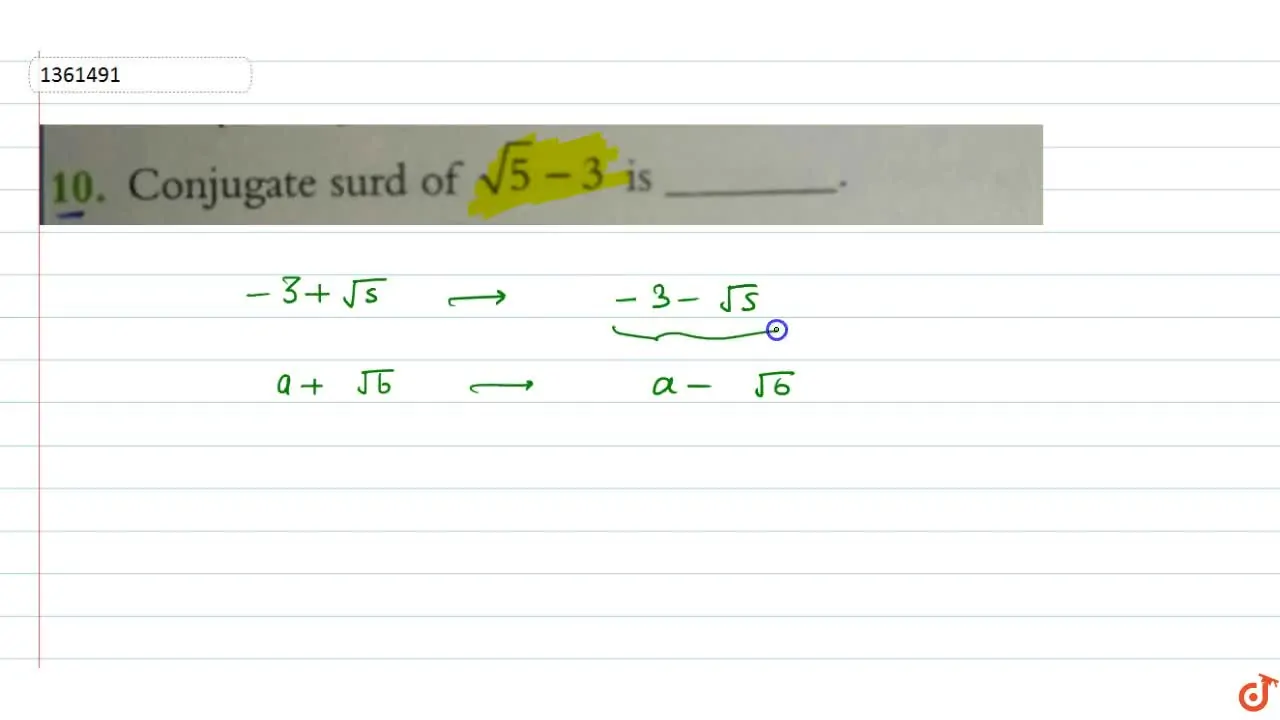 1361491
10. Conjugate surd of √5 – 3 is ________.
– 3 + √5 ⟶ – 3 – √5
a + √b ⟶ a – √b